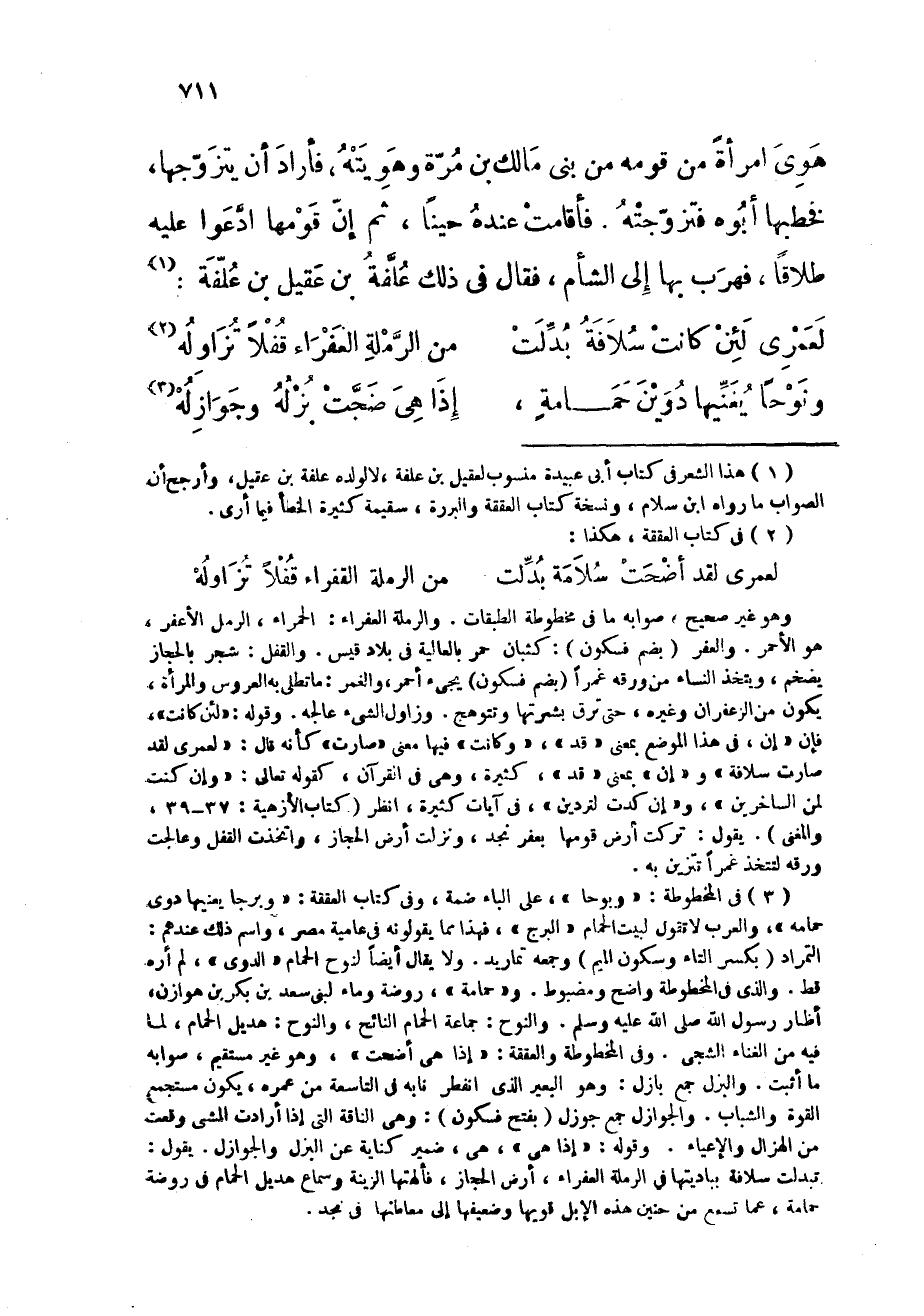 ٧١١
هَوِىَ امرأةً من قومه من بنى مَالك بن مُرّة وهَوِيَتْهُ، فأرادَ أن يتزوّجها،
فخطبها أبُوه فتزوّجتْهُ . فأقامتْ عندهُ حينًا ، ثم إنّ قَوْمها ادَّعَوا عليه
طلاقًا ، فهرَب بها إلى الشأم ، فقال فى ذلك عُلَّفةُ بن عَقيل بن عُلّفَة : (١)
لَعَمْرِى لَئِنْ كانتْ سُلافَةُ بُدِّلَتْ من الرَّمْلةِ العَفْرَاء قُفْلاً تُزَاولُه (٢)
ونَوْحًا يُغَنِّيها دُوَيْنَ حَمَـــامةٍ ، إذَا هِىَ ضَجَّتْ بُزْلُهُ وجَوَازِلُهْ (٣)
( ١ ) هذا الشعر فى كتاب أبى عبيدة منسوب لعقيل بن علفة ، لا لولده علفة بن عقيل، وأرجح أن
الصواب ما رواه ابن سلام ، ونسخة كتاب العققة والبررة ، سقيمة كثيرة الخطأ فيما أرى .
( ٢ ) فى كتاب العققة ، هكذا :
لعمرى لقد أضْحَتْ سُلاَمَة بُدِّلت من الرملة القفراء قُفْلاً تُزَاولُهْ
وهو غير صحيح ، صوابه ما فى مخطوطة الطبقات . والرملة العفراء : الحمراء ، الرمل الأعفر ،
هو الأحمر . والعفر ( بضم فسكون ) : كثبان حمر بالعالية فى بلاد قيس . والقفل : شجر بالحجاز
يضخم ، ويتخذ النساء من ورقه غمراً (بضم فسكون) يجىء أحمر، والغمر : ما تطلى به العروس والمرأة ،
يكون من الزعفران وغيره ، حتى ترق بشرتها وتتوهج . وزاول الشىء عالجه . وقوله : «لئن كانت»،
فإن « إن ، فى هذا الموضع بمعنى « قد » ، « وكانت » فيها معنى «صارت» كأنه قال : « لعمرى لقد
صارت سلافة » و « إن » بمعنى « قد » ، كثيرة ، وهى فى القرآن ، كقوله تعالى : « وإن كنت
لمن الساخرين » ، و« إن كدت لتردين » ، فى آيات كثيرة ، انظر ( كتاب الأزهية : ٣٧–٣٩ ،
والمغنى ) . يقول : تركت أرض قومها بعفر نجد ، ونزلت أرض الحجاز ، واتخذت القفل وعالجت
ورقه لتتخذ غمراً تتزين به .
( ٣ ) فى المخطوطة : « وبوحا » ، على الباء ضمة ، وفى كتاب العققة : « وبرجا يعنيها دوى
حمامه »، والعرب لا تقول لبيت الحمام « البرج » ، فهذا مما يقولونه فى عامية مصر ، واسم ذلك عندهم :
التمراد ( بكسر التاء وسكون الميم ) وجمعه تماريد . ولا يقال أيضاً لنوح الحمام « الدوى » ، لم أره
قط . والذى فى المخطوطة واضح ومضبوط . و« حمامة » ، روضة وماء لبنى سعد بن بكر بن هوازن،
أظآر رسول الله صلى الله عليه وسلم . والنوح : جماعة الحمام النائح ، والنوح : هديل الحمام ، لما
فيه من الغناء الشجى . وفى المخطوطة والعققة : « إذا هى أضحت » ، وهو غير مستقيم ، صوابه
ما أثبت . والبزل جمع بازل : وهو البعير الذى انفطر نابه فى التاسعة من عمره ، يكون مستجمع
القوة والشباب . والجوازل جمع جوزل ( بفتح فسكون ) : وهى الناقة التى إذا أرادت المشى وقعت
من الهزال والإعياء . وقوله : « إذا هى » ، هى ، ضمير كناية عن البزل والجوازل . يقول :
تبدلت سلافة بباديتها فى الرملة العفراء ، أرض الحجاز ، فألهتها الزينة وسماع هديل الحمام فى روضة
حمامة ، عما تسمع من حنين هذه الإبل قويها وضعيفها إلى معاطنها فى نجد .